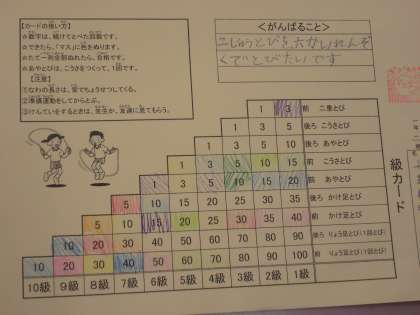 【カードの使い方】
☆数字は、続けてとべた回数です。
☆できたら、「マス」に色をぬります。
☆たて一列全部ぬれたら、合格です。
☆あやとびは、こうさをつくって、1回です。
【注意】
①なわの長さは、家でちょうせつしてくる。
②準備運動をしてからとぶ。
③けんていをするときは、先生か、友達に見てもらう。
＜がんばること＞
二じゅうとびを六かいれんぞ
くでとびたいです
1 3 前 二重とび
1 3 5 後ろ こうさとび
1 3 5 10 後ろ あやとび
1 3 5 10 15 前 こうさとび
1 3 5 10 15 20 前 あやとび
5 10 15 20 25 30 35 後ろ かけ足とび
5 10 15 20 25 30 35 40 前 かけ足とび
10 20 30 40 50 60 70 80 90 後ろ りょう足とび(1回とび)
10 20 30 40 50 60 70 80 90 100 前 りょう足とび(1回とび)
10級 9級 8級 7級 6級 5級 4級 3級 2級 1級
級カード